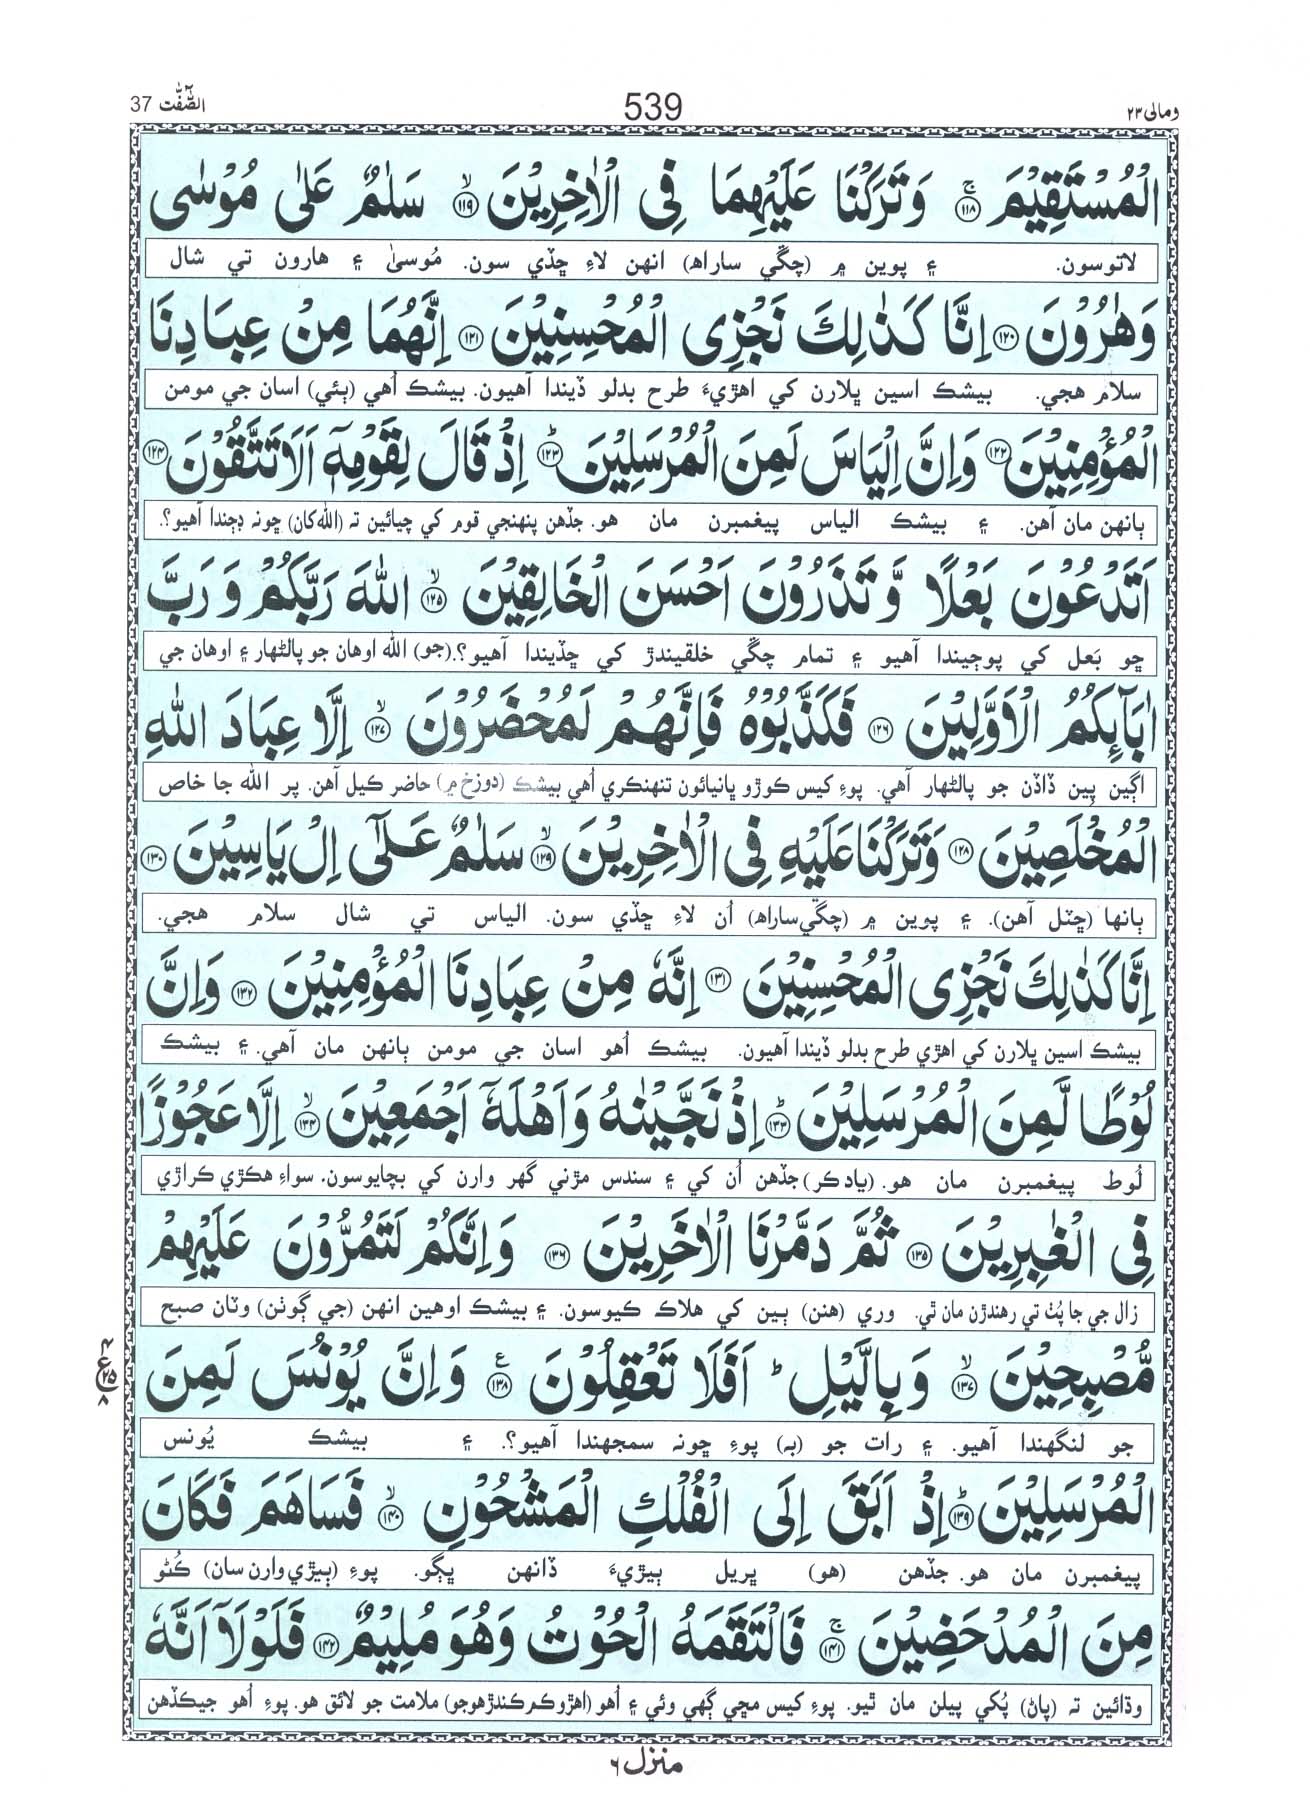 ومالی ۲۳
539
الصّٰٓفّٰت 37
الْمُسْتَقِيْمَ ۚ ﴿۱۱۸﴾ وَتَرَكْنَا عَلَيْهِمَا فِي الْاٰخِرِيْنَ ۙ ﴿۱۱۹﴾ سَلٰمٌ عَلٰى مُوْسٰى
لاتوسون. ۽ پوين ۾ (چڱي ساراھ) انهن لاءِ ڇڏي سون. مُوسىٰ ۽ هارون تي شال
وَهٰرُوْنَ ﴿۱۲۰﴾ اِنَّا كَذٰلِكَ نَجْزِي الْمُحْسِنِيْنَ ﴿۱۲۱﴾ اِنَّهُمَا مِنْ عِبَادِنَا
سلام هجي. بيشڪ اسين ڀلارن کي اهڙيءَ طرح بدلو ڏيندا آهيون. بيشڪ اُهي (ٻئي) اسان جي مومن
الْمُؤْمِنِيْنَ ﴿۱۲۲﴾ وَاِنَّ اِلْيَاسَ لَمِنَ الْمُرْسَلِيْنَ ؕ ﴿۱۲۳﴾ اِذْ قَالَ لِقَوْمِهٖٓ اَلَا تَتَّقُوْنَ ﴿۱۲۴﴾
ٻانهن مان آهن. ۽ بيشڪ الياس پيغمبرن مان هو. جڏهن پنهنجي قوم کي چيائين تہ (الله کان) ڇونہ ڊڄندا آهيو؟.
اَتَدْعُوْنَ بَعْلًا وَّتَذَرُوْنَ اَحْسَنَ الْخَالِقِيْنَ ۙ ﴿۱۲۵﴾ اللهَ رَبَّكُمْ وَرَبَّ
ڇو بَعل کي پوڄيندا آهيو ۽ تمام چڱي خلقيندڙ کي ڇڏيندا آهيو؟. (جو) الله اوهان جو پالڻهار ۽ اوهان جي
اٰبَآئِكُمُ الْاَوَّلِيْنَ ﴿۱۲۶﴾ فَكَذَّبُوْهُ فَاِنَّهُمْ لَمُحْضَرُوْنَ ۙ ﴿۱۲۷﴾ اِلَّا عِبَادَ اللهِ
اڳين پِين ڏاڏن جو پالڻهار آهي. پوءِ کيس ڪوڙو ڀانيائون تنهنڪري اُهي بيشڪ (دوزخ ۾) حاضر ڪيل آهن. پر الله جا خاص
الْمُخْلَصِيْنَ ﴿۱۲۸﴾ وَتَرَكْنَا عَلَيْهِ فِي الْاٰخِرِيْنَ ۙ ﴿۱۲۹﴾ سَلٰمٌ عَلٰٓى اِلْ يَاسِيْنَ ﴿۱۳۰﴾
ٻانها (ڇٽل آهن). ۽ پوين ۾ (چڱي ساراھ) اُن لاءِ ڇڏي سون. الياس تي شال سلام هجي.
اِنَّا كَذٰلِكَ نَجْزِي الْمُحْسِنِيْنَ ﴿۱۳۱﴾ اِنَّهٗ مِنْ عِبَادِنَا الْمُؤْمِنِيْنَ ﴿۱۳۲﴾ وَاِنَّ
بيشڪ اسين ڀلارن کي اهڙي طرح بدلو ڏيندا آهيون. بيشڪ اُهو اسان جي مومن ٻانهن مان آهي. ۽ بيشڪ
لُوْطًا لَّمِنَ الْمُرْسَلِيْنَ ؕ ﴿۱۳۳﴾ اِذْ نَجَّيْنٰهُ وَاَهْلَهٗٓ اَجْمَعِيْنَ ۙ ﴿۱۳۴﴾ اِلَّا عَجُوْزًا
لُوط پيغمبرن مان هو. (ياد ڪر) جڏهن اُن کي ۽ سندس مڙني گهر وارن کي بچايوسون، سواءِ هڪڙي ڪراڙي
فِي الْغٰبِرِيْنَ ﴿۱۳۵﴾ ثُمَّ دَمَّرْنَا الْاٰخَرِيْنَ ﴿۱۳۶﴾ وَاِنَّكُمْ لَتَمُرُّوْنَ عَلَيْهِمْ
زال جي جا پُٺ تي رهندڙن مان ٿي. وري (هنن) ٻين کي هلاڪ ڪيوسون. ۽ بيشڪ اوهين انهن (جي ڳوٺن) وٽان صبح
مُّصْبِحِيْنَ ۙ ﴿۱۳۷﴾ وَبِالَّيْلِ ؕ اَفَلَا تَعْقِلُوْنَ ﴿۱۳۸﴾ ع وَاِنَّ يُوْنُسَ لَمِنَ
جو لنگهندا آهيو. ۽ رات جو (بہ) پوءِ ڇونہ سمجهندا آهيو؟. ۽ بيشڪ يُونس
الْمُرْسَلِيْنَ ؕ ﴿۱۳۹﴾ اِذْ اَبَقَ اِلَى الْفُلْكِ الْمَشْحُوْنِ ۙ ﴿۱۴۰﴾ فَسَاهَمَ فَكَانَ
پيغمبرن مان هو. جڏهن (هو) ڀريل ٻيڙيءَ ڏانهن ڀڳو. پوءِ (ٻيڙي وارن سان) ڪُڻو
مِنَ الْمُدْحَضِيْنَ ۚ ﴿۱۴۱﴾ فَالْتَقَمَهُ الْحُوْتُ وَهُوَ مُلِيْمٌ ﴿۱۴۲﴾ فَلَوْلَآ اَنَّهٗ
وڌائين تہ (پاڻ) پُکي پيلن مان ٿيو. پوءِ کيس مڇي ڳهي وئي ۽ اُهو (اهڙو ڪم ڪندڙ هو جو) ملامت جو لائق هو. پوءِ اُهو جيڪڏهن
منزل ۶